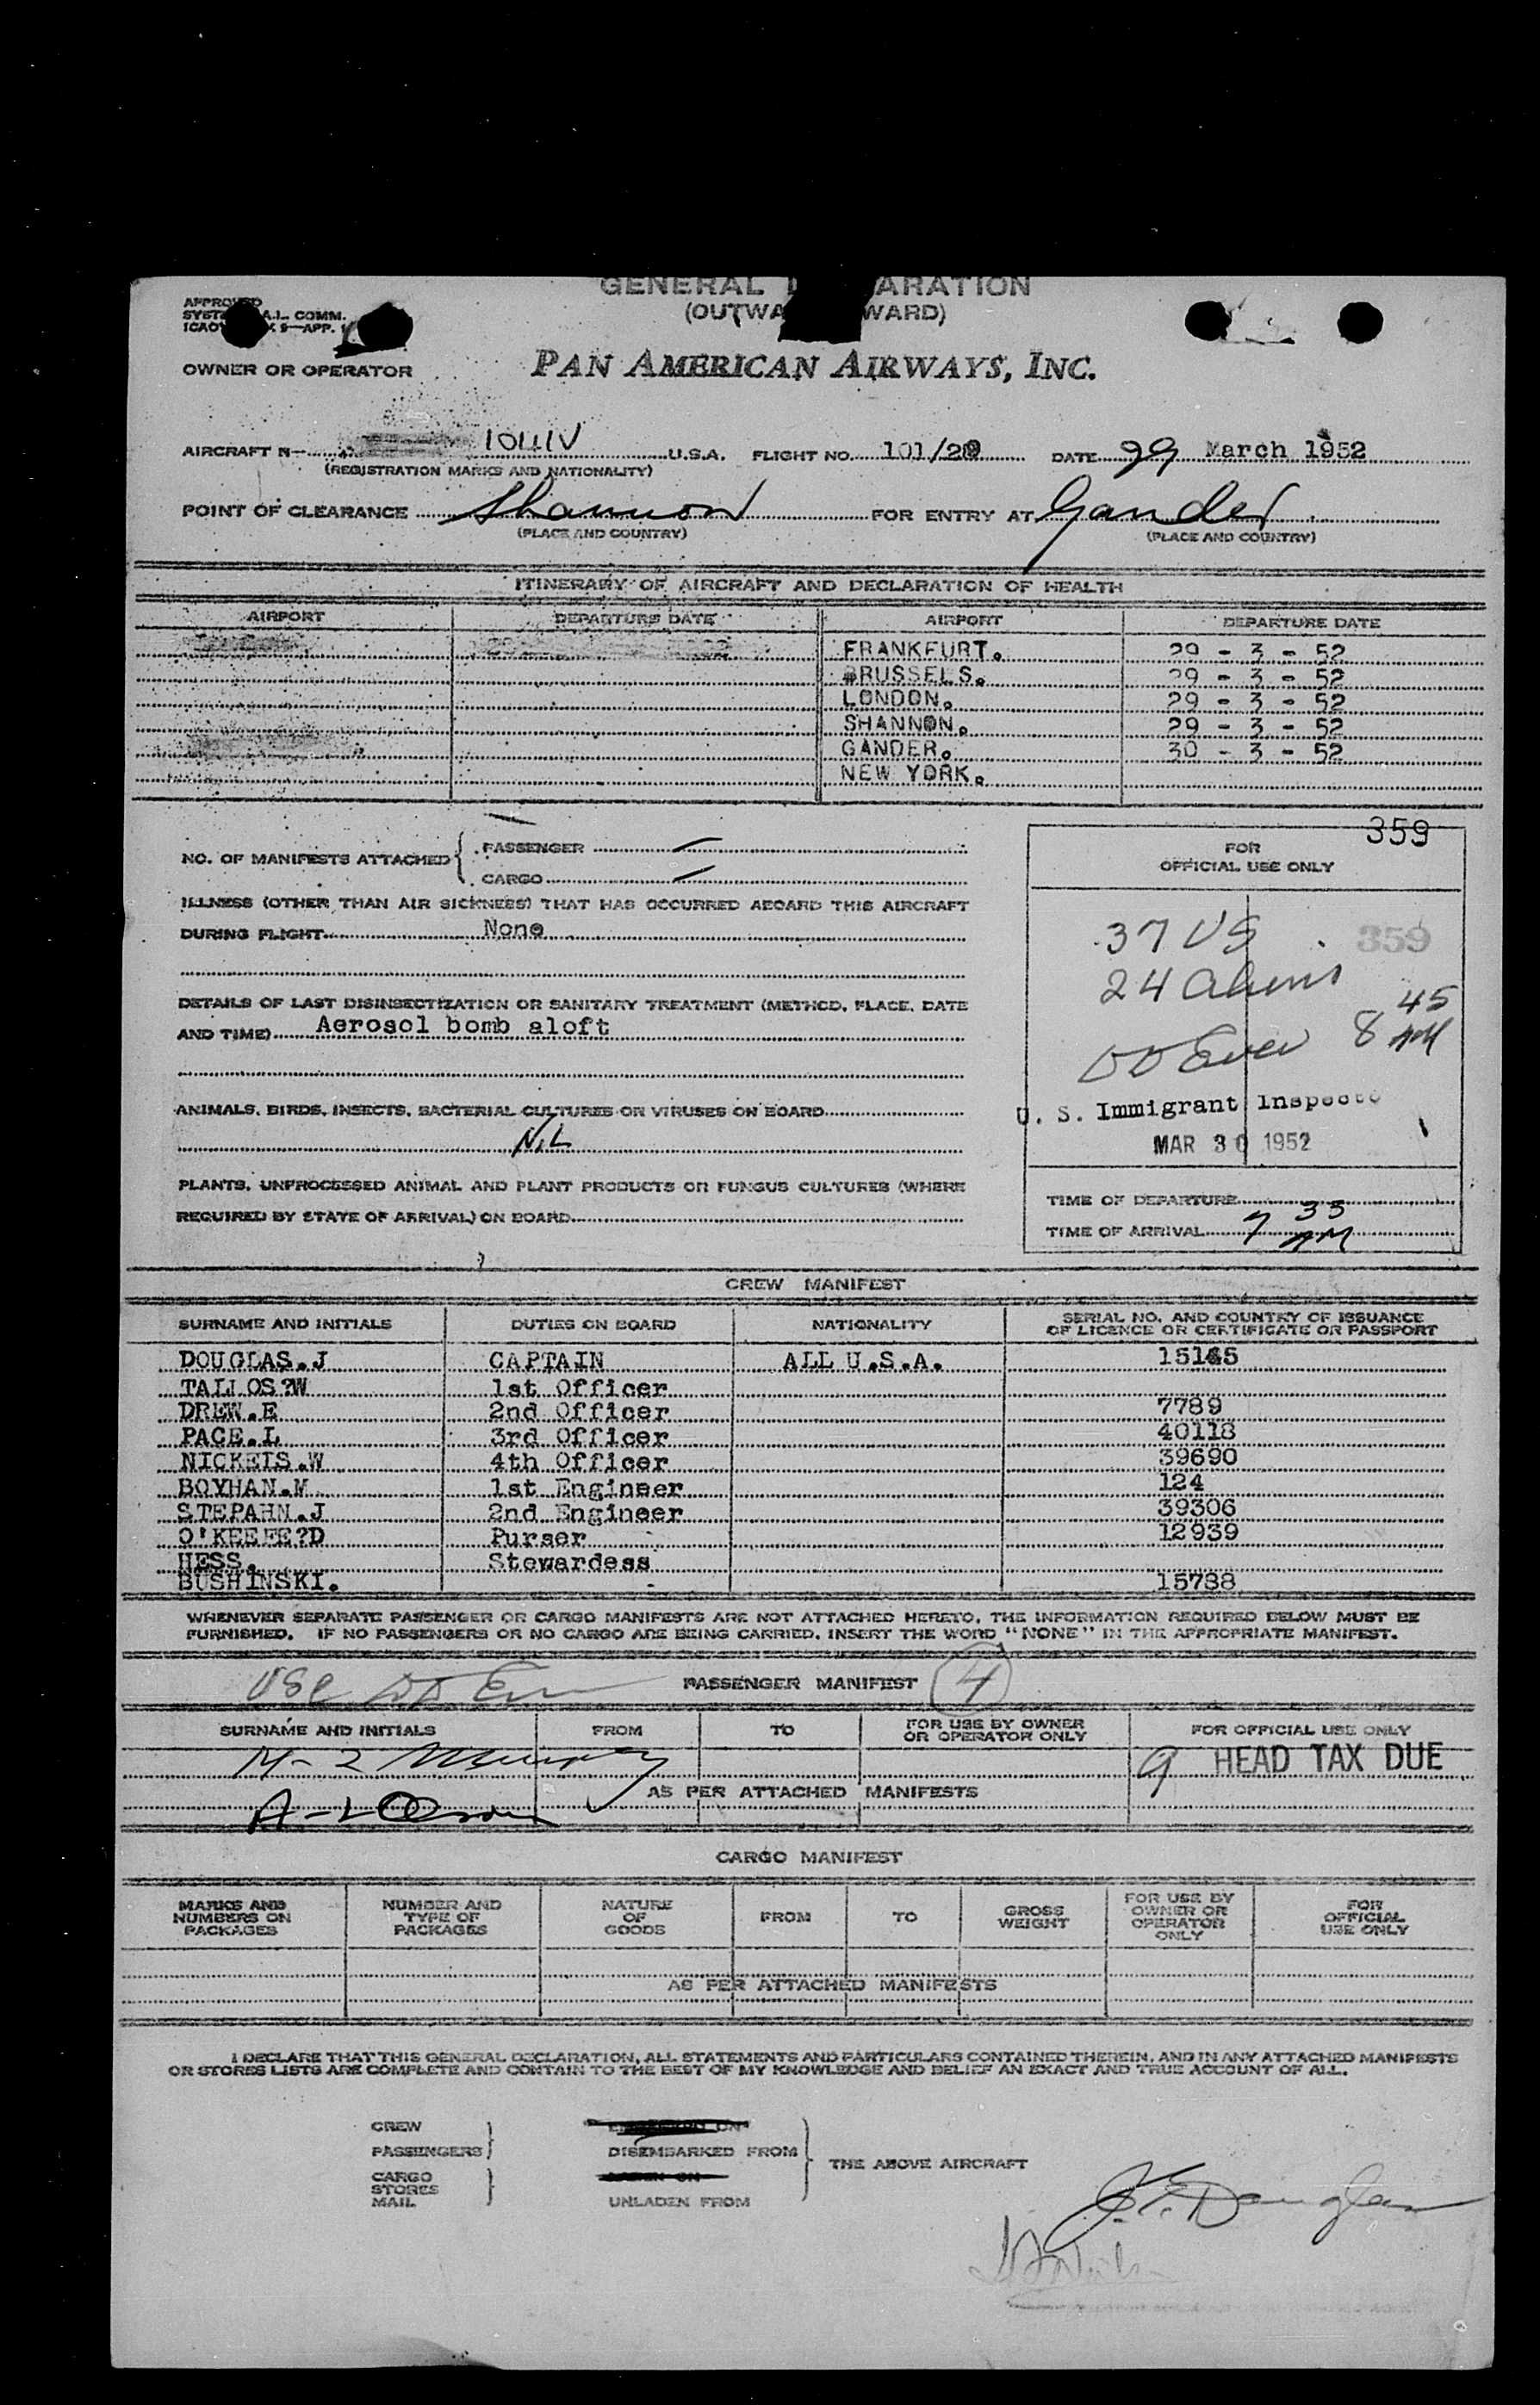 GENERAL ARATION
(OUTWA WARD)
APPROVED
SYST A.I. COMM.
ICAO 9—APP.
OWNER OR OPERATOR PAN AMERICAN AIRWAYS, INC.
AIRCRAFT N— 1041V U.S.A. FLIGHT NO. 101/29 DATE 29 March 1952
(REGISTRATION MARKS AND NATIONALITY)
POINT OF CLEARANCE Shannon FOR ENTRY AT Gander
(PLACE AND COUNTRY) (PLACE AND COUNTRY)
ITINERARY OF AIRCRAFT AND DECLARATION OF HEALTH
AIRPORT DEPARTURE DATE AIRPORT DEPARTURE DATE
FRANKFURT. 29 - 3 - 52
BRUSSELS. 29 - 3 - 52
LONDON. 29 - 3 - 52
SHANNON. 29 - 3 - 52
GANDER. 30 - 3 - 52
NEW YORK.
359
NO. OF MANIFESTS ATTACHED { PASSENGER —
CARGO —
FOR
OFFICIAL USE ONLY
ILLNESS (OTHER THAN AIR SICKNESS) THAT HAS OCCURRED ABOARD THIS AIRCRAFT
DURING FLIGHT None
37 US 359
24 Aliens
DETAILS OF LAST DISINSECTIZATION OR SANITARY TREATMENT (METHOD, PLACE, DATE
AND TIME) Aerosol bomb aloft
8 45 AM
ANIMALS, BIRDS, INSECTS, BACTERIAL CULTURES OR VIRUSES ON BOARD
NIL
U. S. Immigrant Inspecto
MAR 30 1952
PLANTS, UNPROCESSED ANIMAL AND PLANT PRODUCTS OR FUNGUS CULTURES (WHERE
REQUIRED BY STATE OF ARRIVAL) ON BOARD
TIME OF DEPARTURE
TIME OF ARRIVAL 7 35 AM
CREW MANIFEST
SURNAME AND INITIALS DUTIES ON BOARD NATIONALITY SERIAL NO. AND COUNTRY OF ISSUANCE
OF LICENCE OR CERTIFICATE OR PASSPORT
DOUGLAS.J CAPTAIN ALL U.S.A.
TALLOS?W 1st Officer
DREW.E 2nd Officer 7789
PACE.L 3rd Officer 40118
NICKEIS.W 4th Officer 39690
BOYHAN.M 1st Engineer 124
STEPAHN.J 2nd Engineer 39306
O'KEEFE?D Purser 12939
HESS. Stewardess
BUSHINSKI. 15788
WHENEVER SEPARATE PASSENGER OR CARGO MANIFESTS ARE NOT ATTACHED HERETO, THE INFORMATION REQUIRED BELOW MUST BE
FURNISHED. IF NO PASSENGERS OR NO CARGO ARE BEING CARRIED, INSERT THE WORD "NONE" IN THE APPROPRIATE MANIFEST.
PASSENGER MANIFEST 4
SURNAME AND INITIALS FROM TO FOR USE BY OWNER
OR OPERATOR ONLY FOR OFFICIAL USE ONLY
9 HEAD TAX DUE
AS PER ATTACHED MANIFESTS
CARGO MANIFEST
MARKS AND
NUMBERS ON
PACKAGES NUMBER AND
TYPE OF
PACKAGES NATURE
OF
GOODS FROM TO GROSS
WEIGHT FOR USE BY
OWNER OR
OPERATOR
ONLY FOR
OFFICIAL
USE ONLY
AS PER ATTACHED MANIFESTS
I DECLARE THAT THIS GENERAL DECLARATION, ALL STATEMENTS AND PARTICULARS CONTAINED THEREIN, AND IN ANY ATTACHED MANIFESTS
OR STORES LISTS ARE COMPLETE AND CONTAIN TO THE BEST OF MY KNOWLEDGE AND BELIEF AN EXACT AND TRUE ACCOUNT OF ALL.
CREW
PASSENGERS } DISEMBARKED FROM
CARGO
STORES
MAIL } UNLADEN FROM
THE ABOVE AIRCRAFT
J. E. Douglas